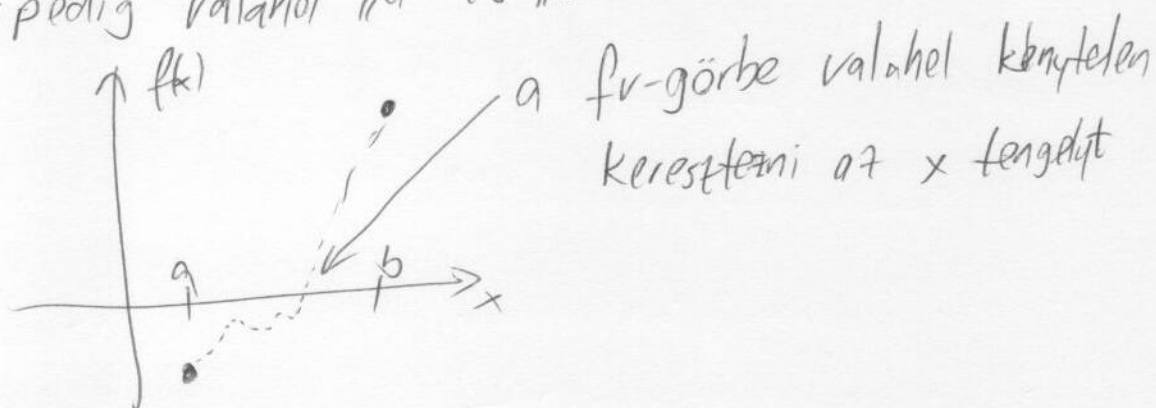 pedig valahol
f(x)
a fv-görbe valahol kénytelen
keresztezni az x tengelyt
a
b
x